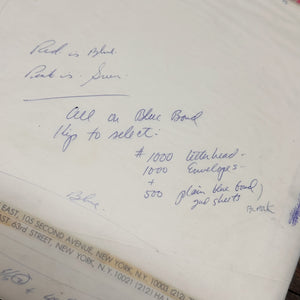 Red is Blue.
Pink is
All on Blue Bond
Kip to select:
# 1000 letterhead -
1000 Envelopes -
+
500 plain blue bond
2nd sheets
BLANK
Blue.
EAST, 105 SECOND AVENUE, NEW YORK, N.Y. 10003 (212)
EAST 63rd STREET, NEW YORK, N.Y. 10021 (212)